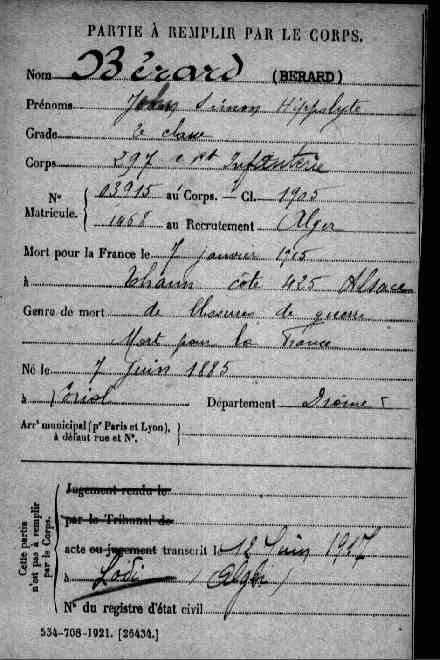 PARTIE À REMPLIR PAR LE CORPS.
Nom Bérard (BERARD)
Prénoms John Simon Hippolyte
Grade 2e classe
Corps 297 e Rt Infanterie
Nº 03915 au Corps. — Cl. 1905
Matricule. 1468 au Recrutement Alger
Mort pour la France le 7 janvier 1915
à Thann côte 425 Alsace
Genre de mort de blessures de guerre
Mort pour la France
Né le 7 Juin 1885
à Loriol Département Drôme
Arrt municipal (pr Paris et Lyon),
à défaut rue et Nº.
Cette partie
n'est pas à remplir
par le Corps.
Jugement rendu le
par le Tribunal de
acte ou jugement transcrit le 12 Juin 1917
à Lodi (Alger)
Nº du registre d'état civil
534-708-1921. [26434.]